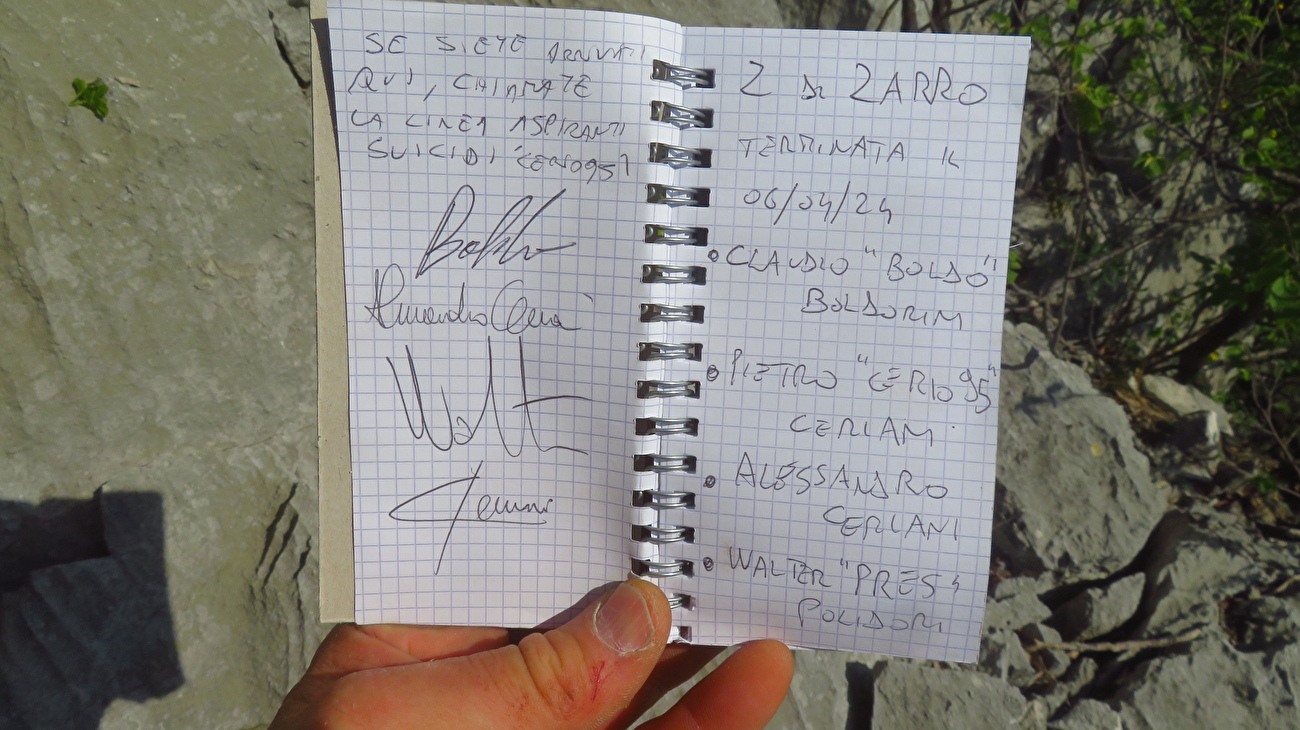 SE SIETE ARRIVATI
QUI, CHIAMATE
LA LINEA ASPIRANTI
SUICIDI "CERIO95"
Alessandro Ceriani
Walter
Z DI ZARRO
TERMINATA IL
06/04/24
• CLAUDIO "BOLDO"
BOLDORINI
• PIETRO "CERIO95"
CERIANI
• ALESSANDRO
CERIANI
• WALTER "PRES"
POLIDORI